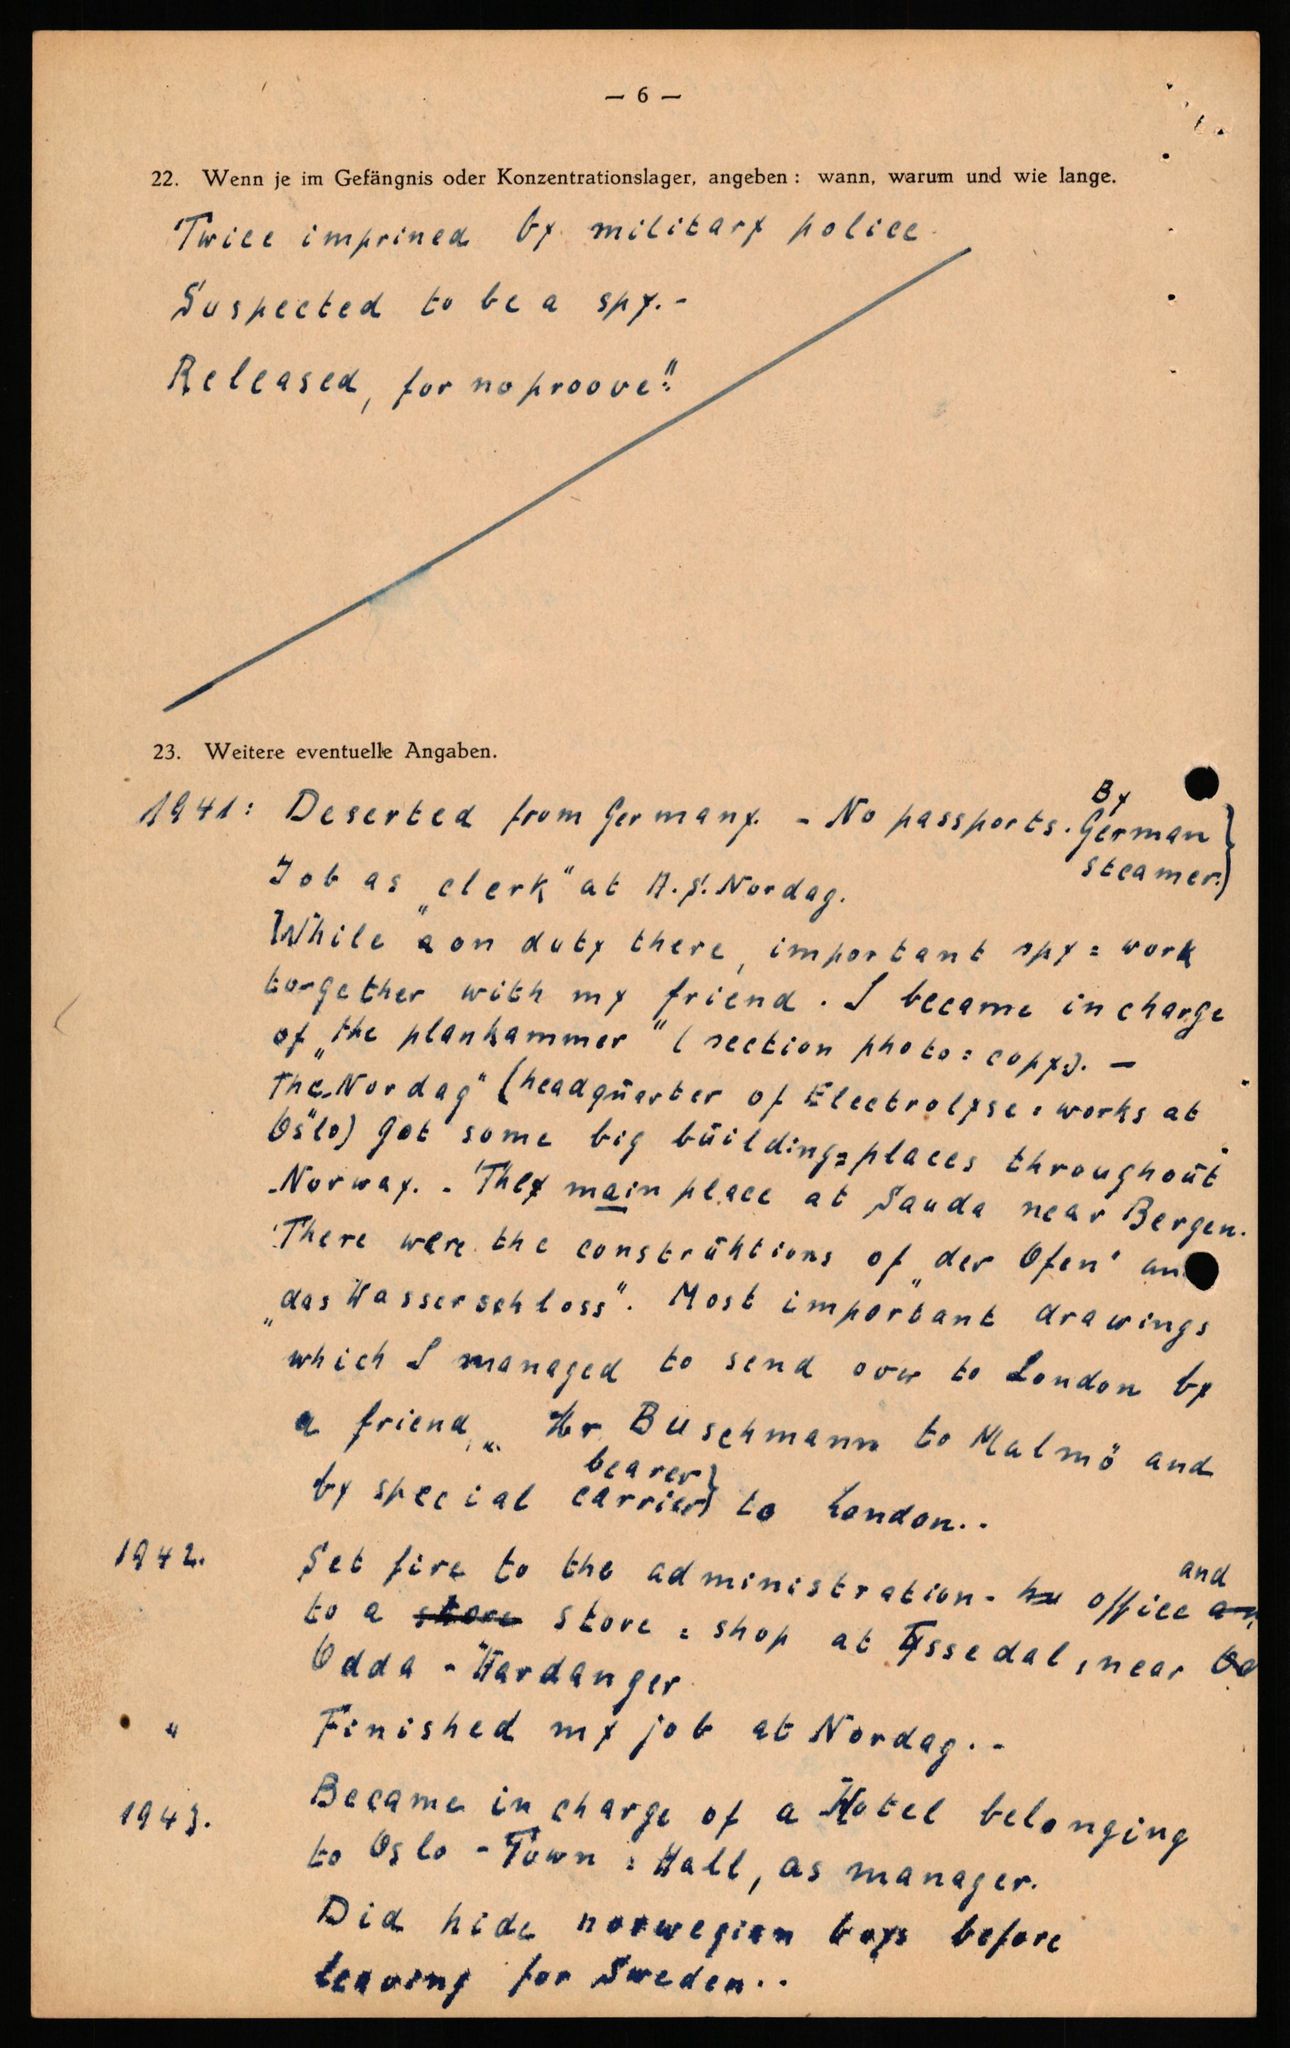 — 6 —
22. Wenn je im Gefängnis oder Konzentrationslager, angeben: wann, warum und wie lange.
Twice imprined by military police
Suspected to be a spy.-
Released, for no proove."
23. Weitere eventuelle Angaben.
1941: Deserted from Germany. - No passports. By German steamer.)
Job as „clerk" at A.S. Nordag.
While a on duty there, important spy = work
torgether with my friend. I became in charge
of „the plankammer" (section photo = copy). —
The „Nordag" (headquarter of Electrolyse = works at
Oslo) Got some big building = places throughout
Norway. - They main place at Sauda near Bergen.
There were the construktions of „der Ofen" an
„das Wasserschloss". Most important drawings
which I managed to send over to London by
a friend, „ Hr. Buschmann to Malmö and
by special carrier bearer) to London..
1942. Set fire to the administration - office and
to a store store = shop at Tyssedal, near
Odda - Hardanger
" Finished my job at Nordag. -
1943. Became in charge of a Hotel belonging
to Oslo - Town = Hall, as manager.
Did hide norwegian boys before
leaving for Sweden..